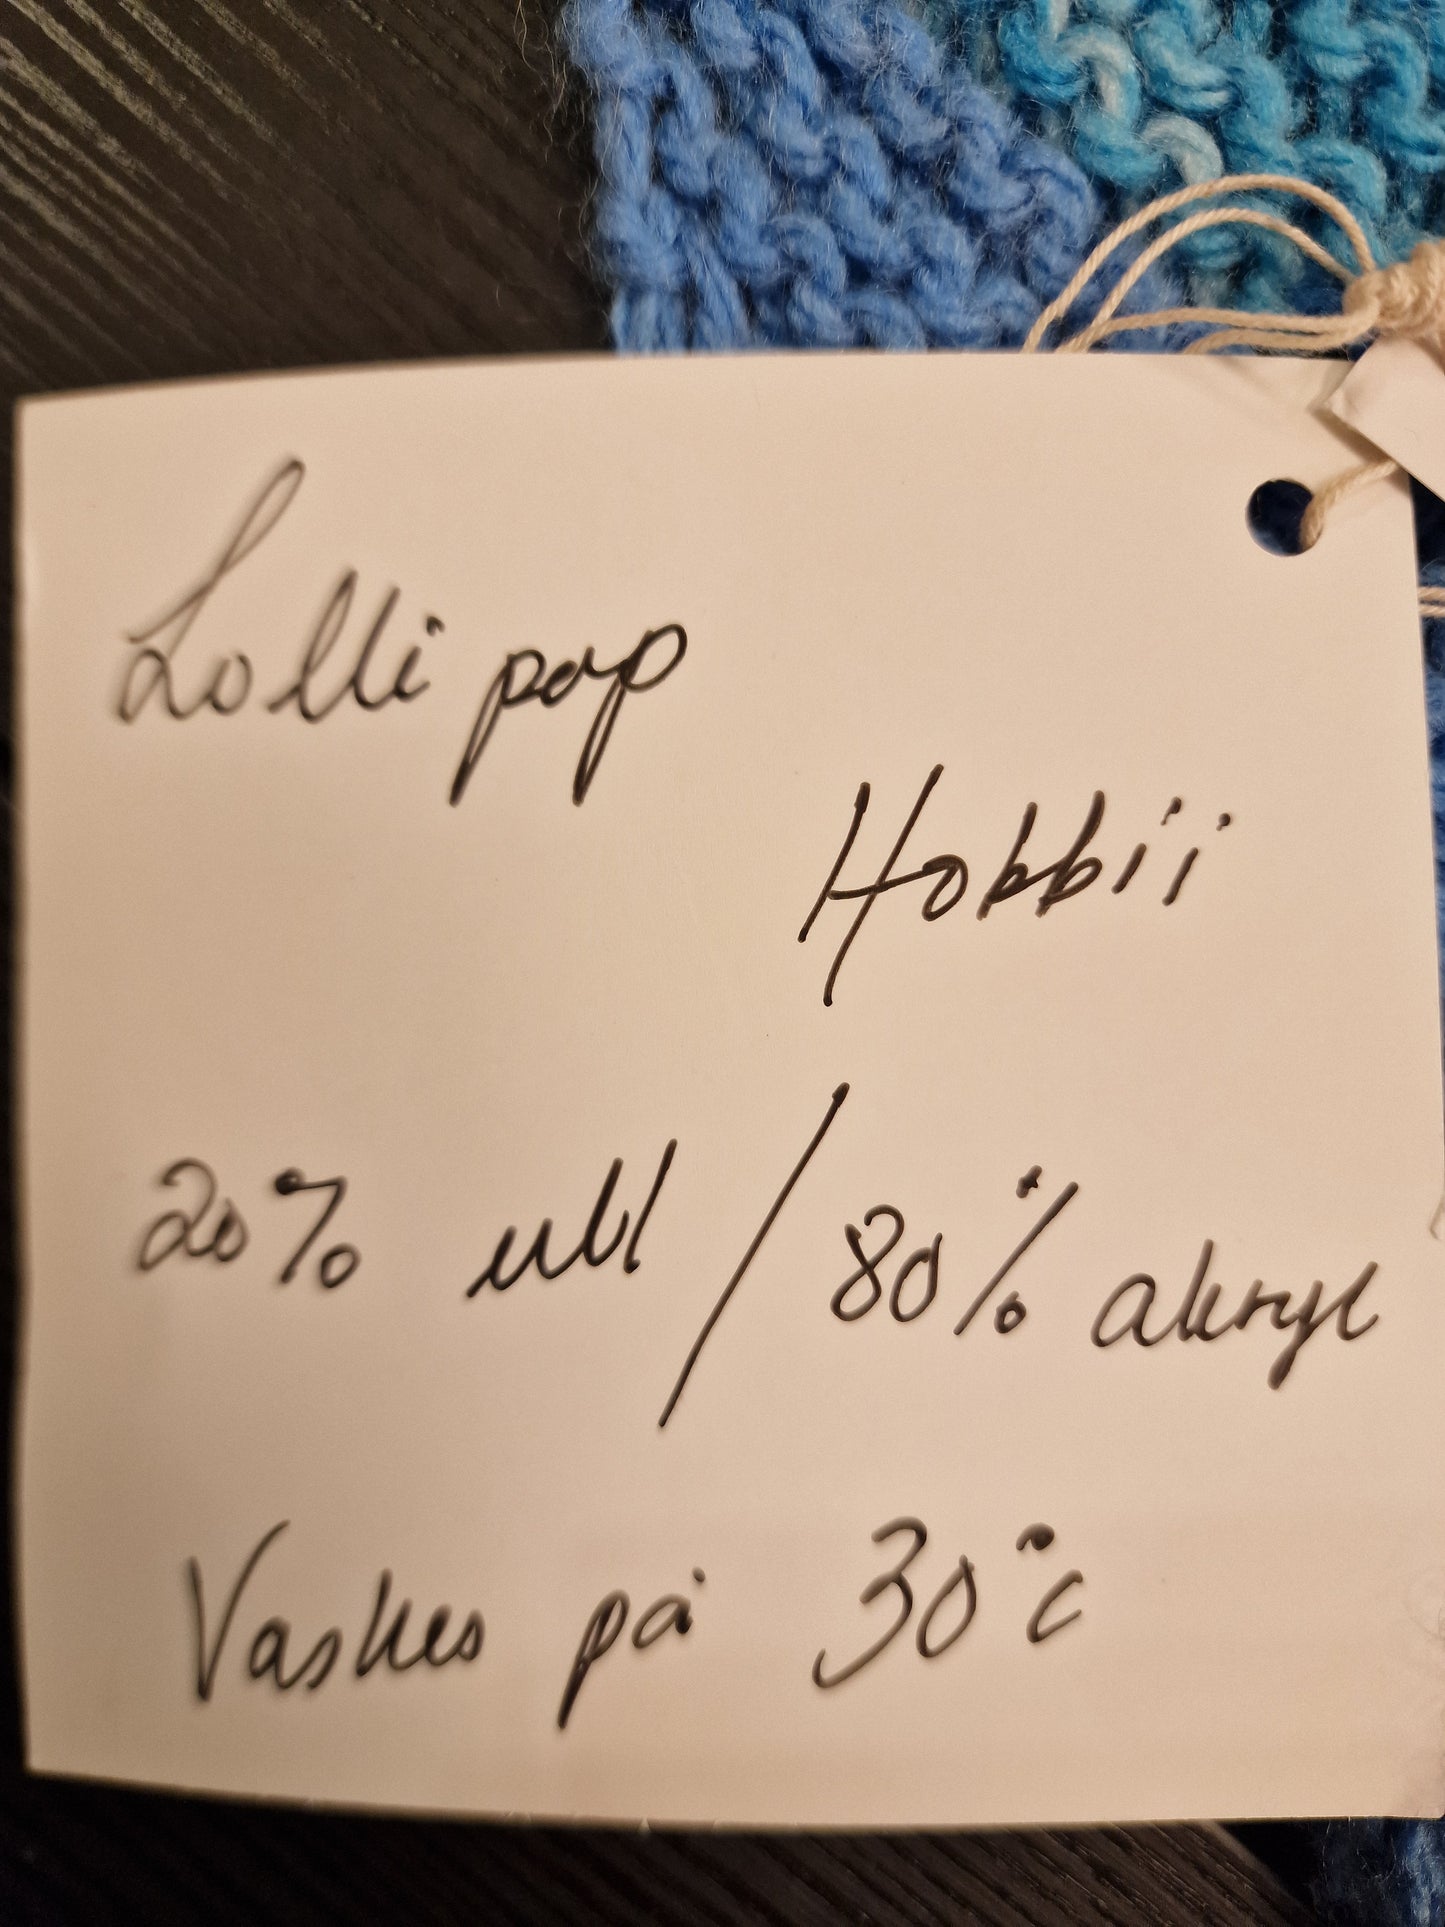 Lollipop
Hobbii
20% uld / 80% akryl
Vaskes på 30°c